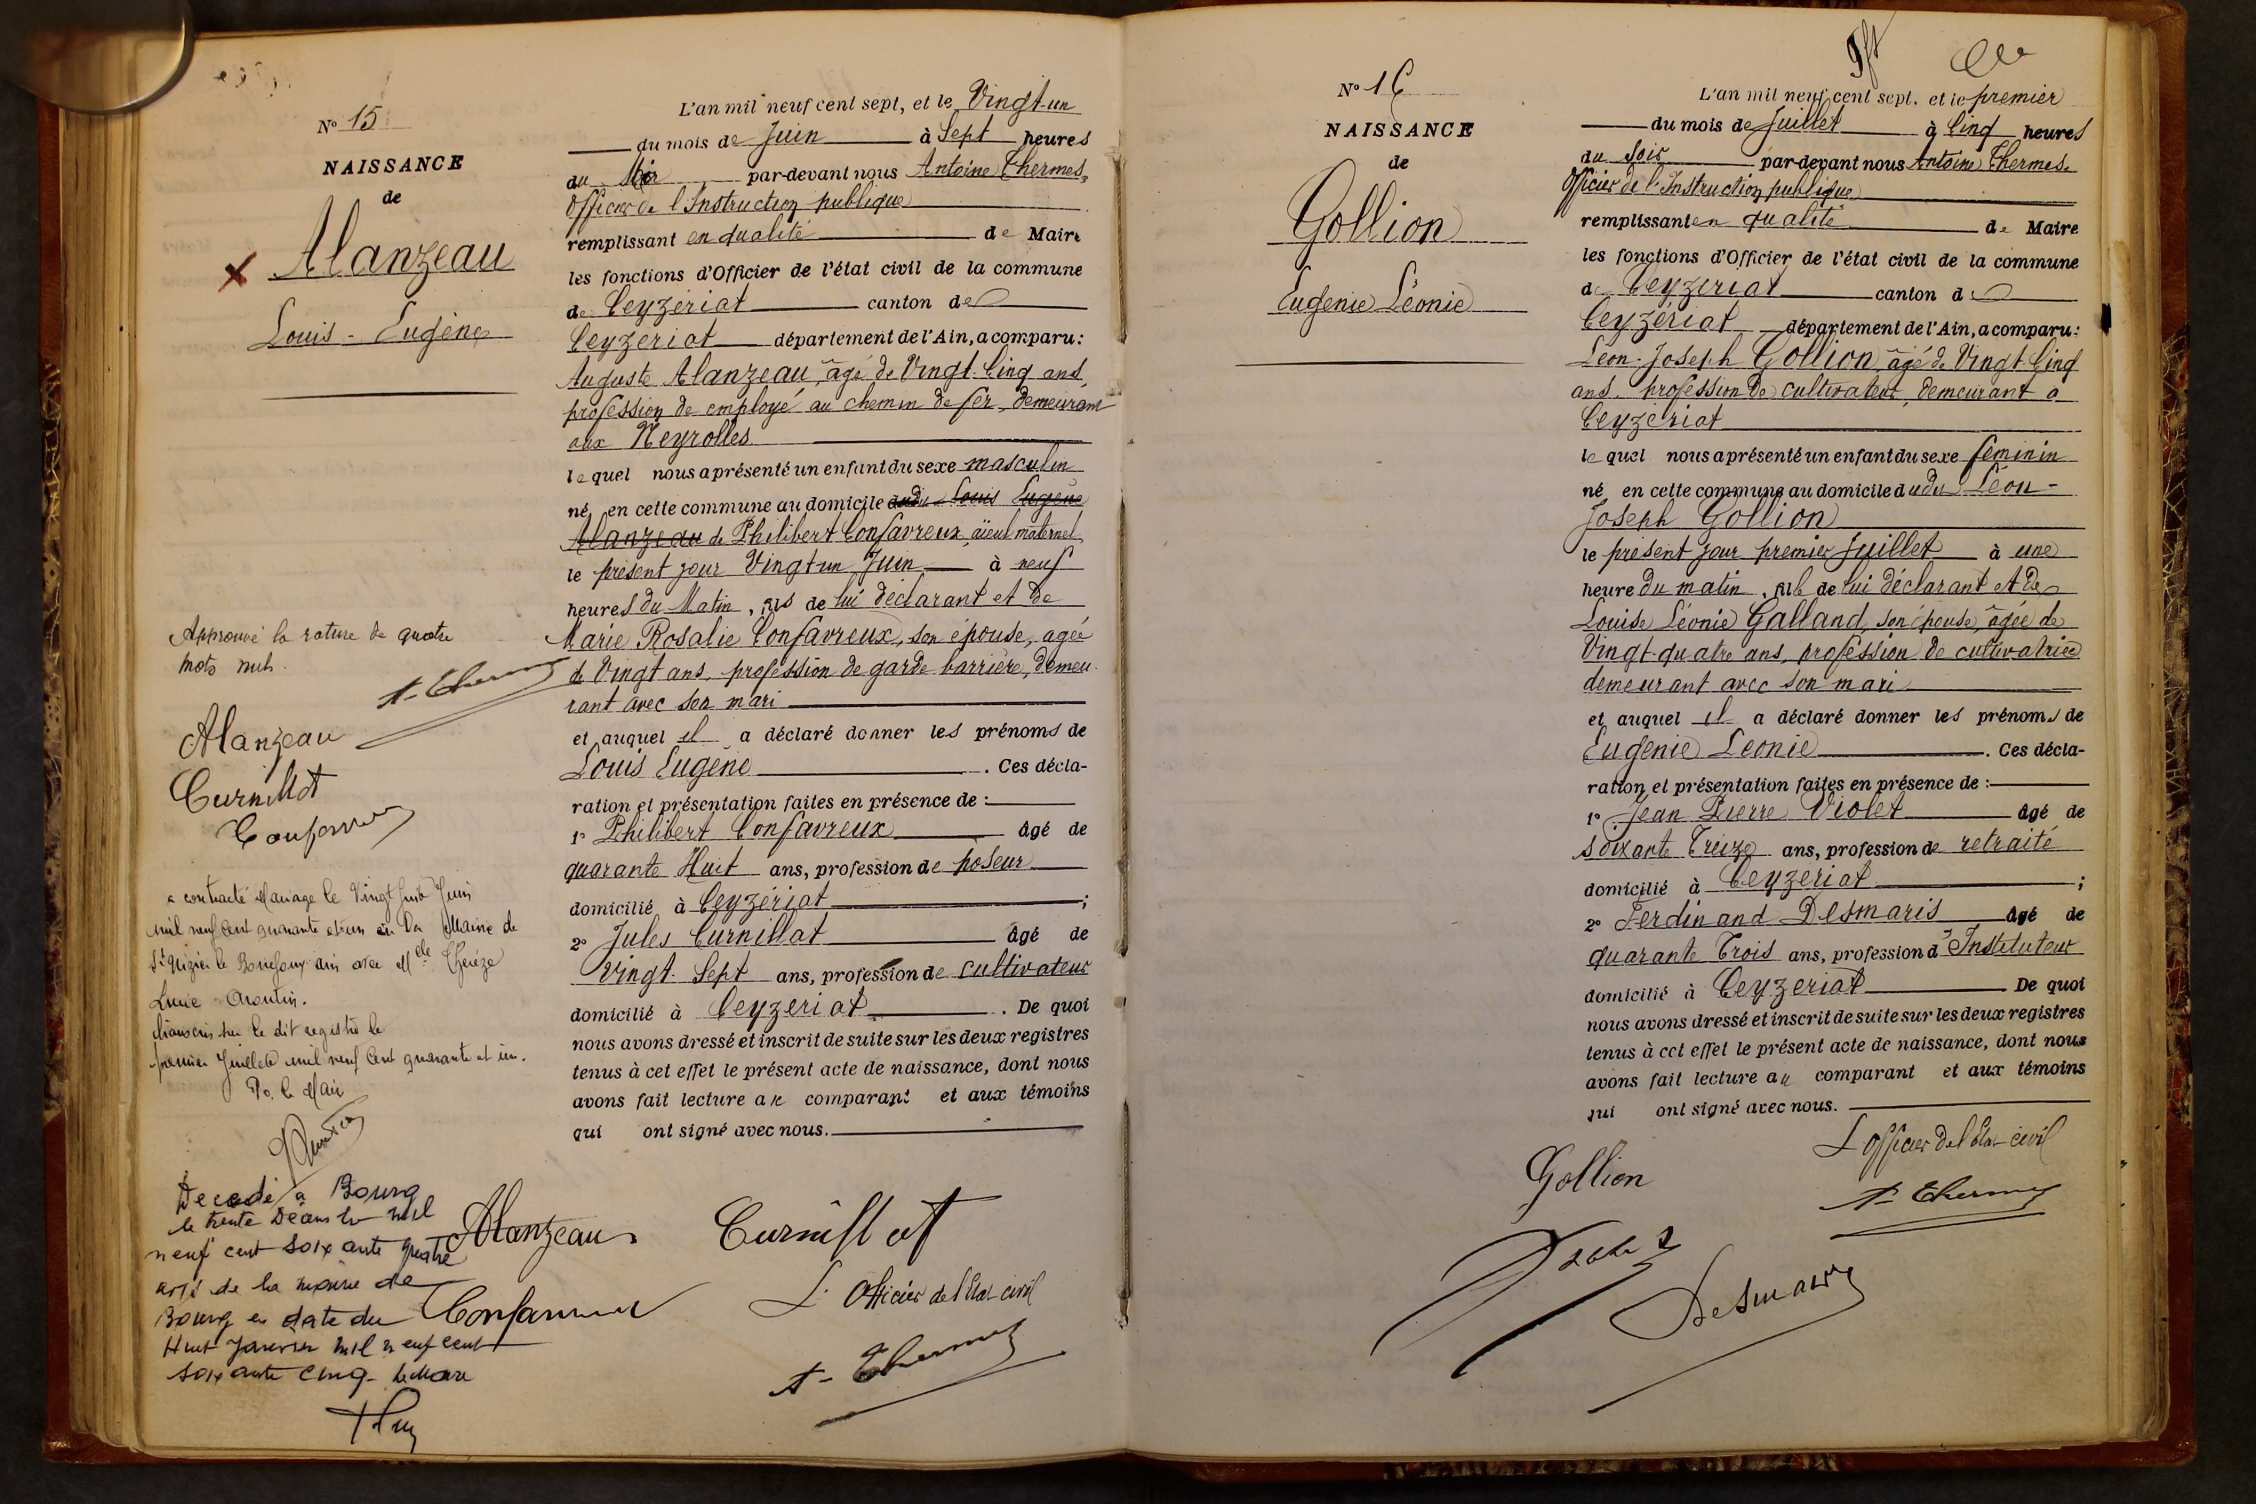 N° 15
NAISSANCE
de
Alanzeau
Louis - Eugène
L'an mil neuf cent sept, et le Vingt-un
du mois de Juin à Sept heures
du Soir par-devant nous Antoine Thermes,
Officier de l'Instruction publique
remplissant en qualité de Maire
les fonctions d'Officier de l'état civil de la commune
de Ceyzériat canton de
Ceyzeriat département de l'Ain, a comparu:
Auguste Alanzeau, âgé de Vingt-Cinq ans,
profession de employé au chemin de fer, demeurant
aux Neyrolles
lequel nous a présenté un enfant du sexe masculin
né en cette commune au domicile dudu Louis Eugène
Alanzeau de Philibert Confavreux, aïeul maternel
le présent jour Vingt-un Juin à neuf
heures du Matin, fils de lui déclarant et de
Marie Rosalie Confavreux, son épouse, agée
de Vingt ans, profession de garde-barrière, demeu-
rant avec son mari
et auquel il a déclaré donner les prénoms de
Louis Eugène. Ces décla-
ration et présentation faites en présence de :
1° Philibert Confavreux âgé de
quarante Huit ans, profession de poseur
domicilié à Ceyzériat ;
2° Jules Curnillat âgé de
Vingt-Sept ans, profession de cultivateur
domicilié à Ceyzeriat. De quoi
nous avons dressé et inscrit de suite sur les deux registres
tenus à cet effet le présent acte de naissance, dont nous
avons fait lecture au comparant et aux témoins
qui ont signé avec nous.
Approuvé la rature de quatre
mots nuls.
A. Thermes
Alanzeau
Curnillat
Confavreux
a contracté Mariage le Vingt huit Juin
mil neuf cent quarante et un en la Mairie de
St Nizier le Bouchoux ain avec Melle Thérèze
Lucie
transcris sur le dit registre le
premier Juillet mil neuf cent quarante et un.
Po. le Maire
Décédé à Bourg
le trente Décembre mil
neuf cent soixante quatre
avis de la mairie de
Bourg en date du
Huit Janvier mil neuf cent
soixante cinq - le Maire
Alanzeau Curnillat
Confavreux
L'Officier de l'Etat-civil
A. Thermes
N° 16
NAISSANCE
de
Gollion
Eugénie Léonie
L'an mil neuf cent sept, et le premier
du mois de Juillet à Cinq heures
du Soir par-devant nous Antoine Thermes,
Officier de l'Instruction publique
remplissant en qualité de Maire
les fonctions d'Officier de l'état civil de la commune
de Ceyzeriat canton d
Ceyzériat département de l'Ain, a comparu:
Léon-Joseph Gollion, âgé de Vingt-Cinq
ans, profession de cultivateur, demeurant à
Ceyzériat
lequel nous a présenté un enfant du sexe féminin
né en cette commune au domicile dudu Léon-
Joseph Gollion
le présent jour premier Juillet à une
heure du matin, fille de lui déclarant et de
Louise Léonie Galland, son épouse, âgée de
Vingt-quatre ans, profession de cultivatrice
demeurant avec son mari
et auquel il a déclaré donner les prénoms de
Eugénie Léonie. Ces décla-
ration et présentation faites en présence de :
1° Jean Pierre Violet âgé de
soixante Treize ans, profession de retraité
domicilié à Ceyzeriat ;
2° Ferdinand Desmaris âgé de
quarante Trois ans, profession d'Instituteur
domicilié à Ceyzeriat De quoi
nous avons dressé et inscrit de suite sur les deux registres
tenus à cet effet le présent acte de naissance, dont nous
avons fait lecture au comparant et aux témoins
qui ont signé avec nous.
L'Officier de l'Etat-civil
Gollion
A. Thermes
Desmaris